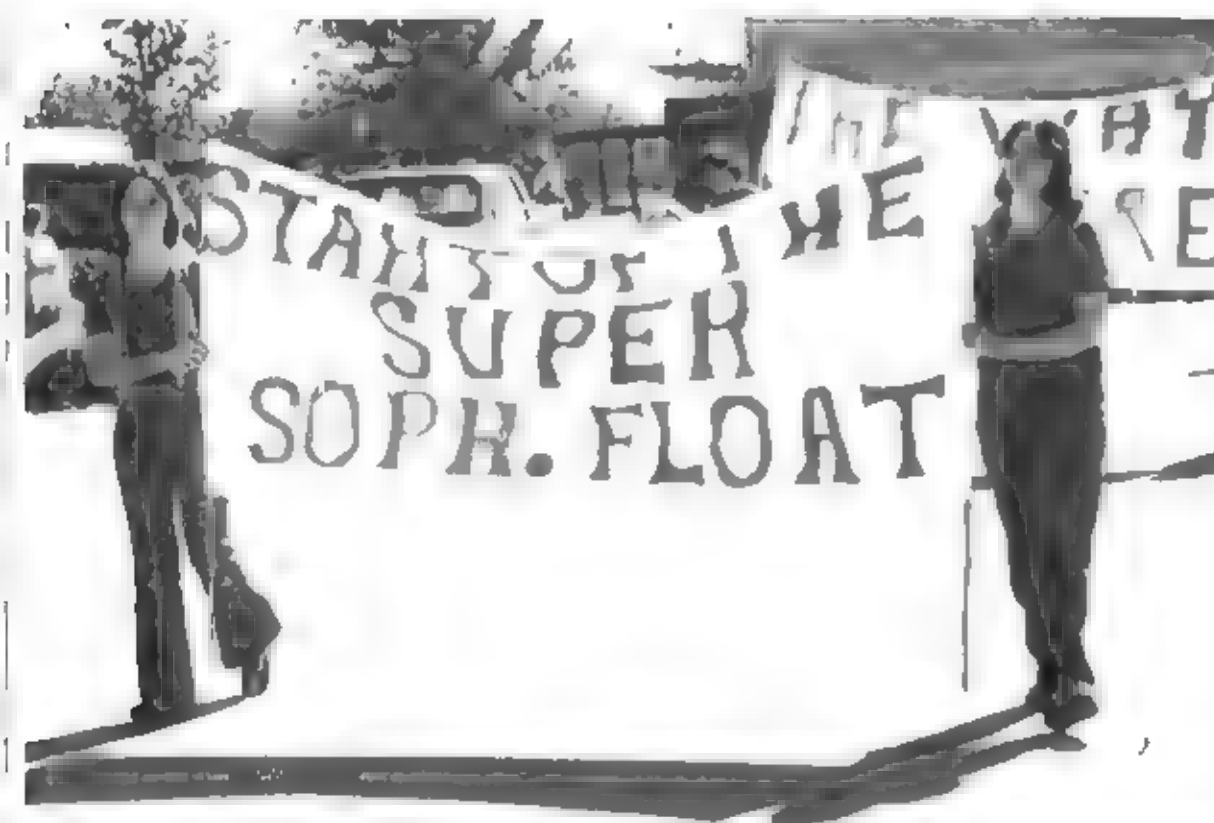 START OF THE
SUPER
SOPH. FLOAT
THE